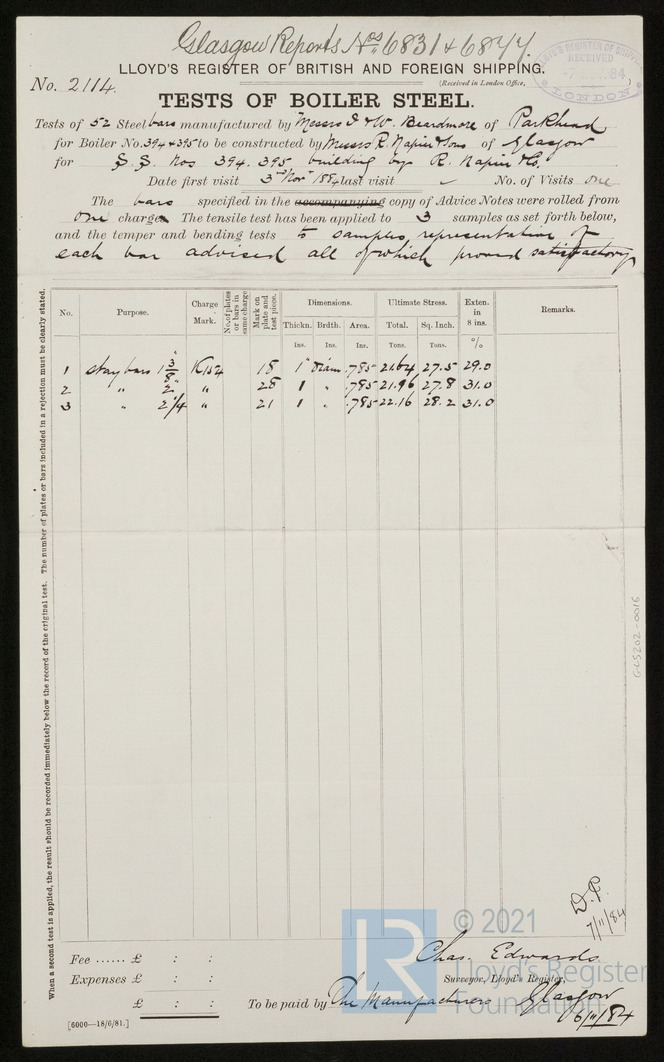 Glasgow Reports Nos 6831 & 6844.
LLOYD'S REGISTER OF BRITISH AND FOREIGN SHIPPING.
No. 2114.
(Received in London Office, )
LLOYD'S REGISTER OF SHIPPING
RECEIVED
84
LONDON
TESTS OF BOILER STEEL.
Tests of 52 Steel bars manufactured by Messrs I & W. Beardmore of Parkhead
for Boiler No. 394 & 395 to be constructed by Messrs R. Napier & Sons of Glasgow
for S.S. Nos 394. 395 building by R. Napier & Co.
Date first visit 3rd Novr 1884 last visit ✓ No. of Visits one
The bars specified in the accompanying copy of Advice Notes were rolled from
one charge. The tensile test has been applied to 3 samples as set forth below,
and the temper and bending tests to samples representative of
each bar advised all of which proved satisfactory
When a second test is applied, the result should be recorded immediately below the record of the original test. The number of plates or bars included in a rejection must be clearly stated.
No. Purpose. Charge Mark. No. of plates or bars in same charge Mark on plate and test piece. Dimensions. Ultimate Stress. Exten. in 8 ins. Remarks.
Thickn. Brdth. Area. Total. Sq. Inch.
Ins. Ins. Ins. Tons. Tons. %
1 stay bars 1 3/8" K154 18 1" Diam .785 21.64 27.5 29.0
2 " 2" " 28 1 " .785 21.96 27.8 31.0
3 " 2 1/4 " 21 1 " .785 22.16 28.2 31.0
GLS202-0016
D.P.
7/11/84
© 2021
LR
Lloyd's Register
Foundation
Fee ...... £ : :
Chas. Edwards
Expenses £ : :
Surveyor, Lloyd's Register,
£ : :
To be paid by The Manufacturers Glasgow
6/11/84
[6000—18/6/81.]